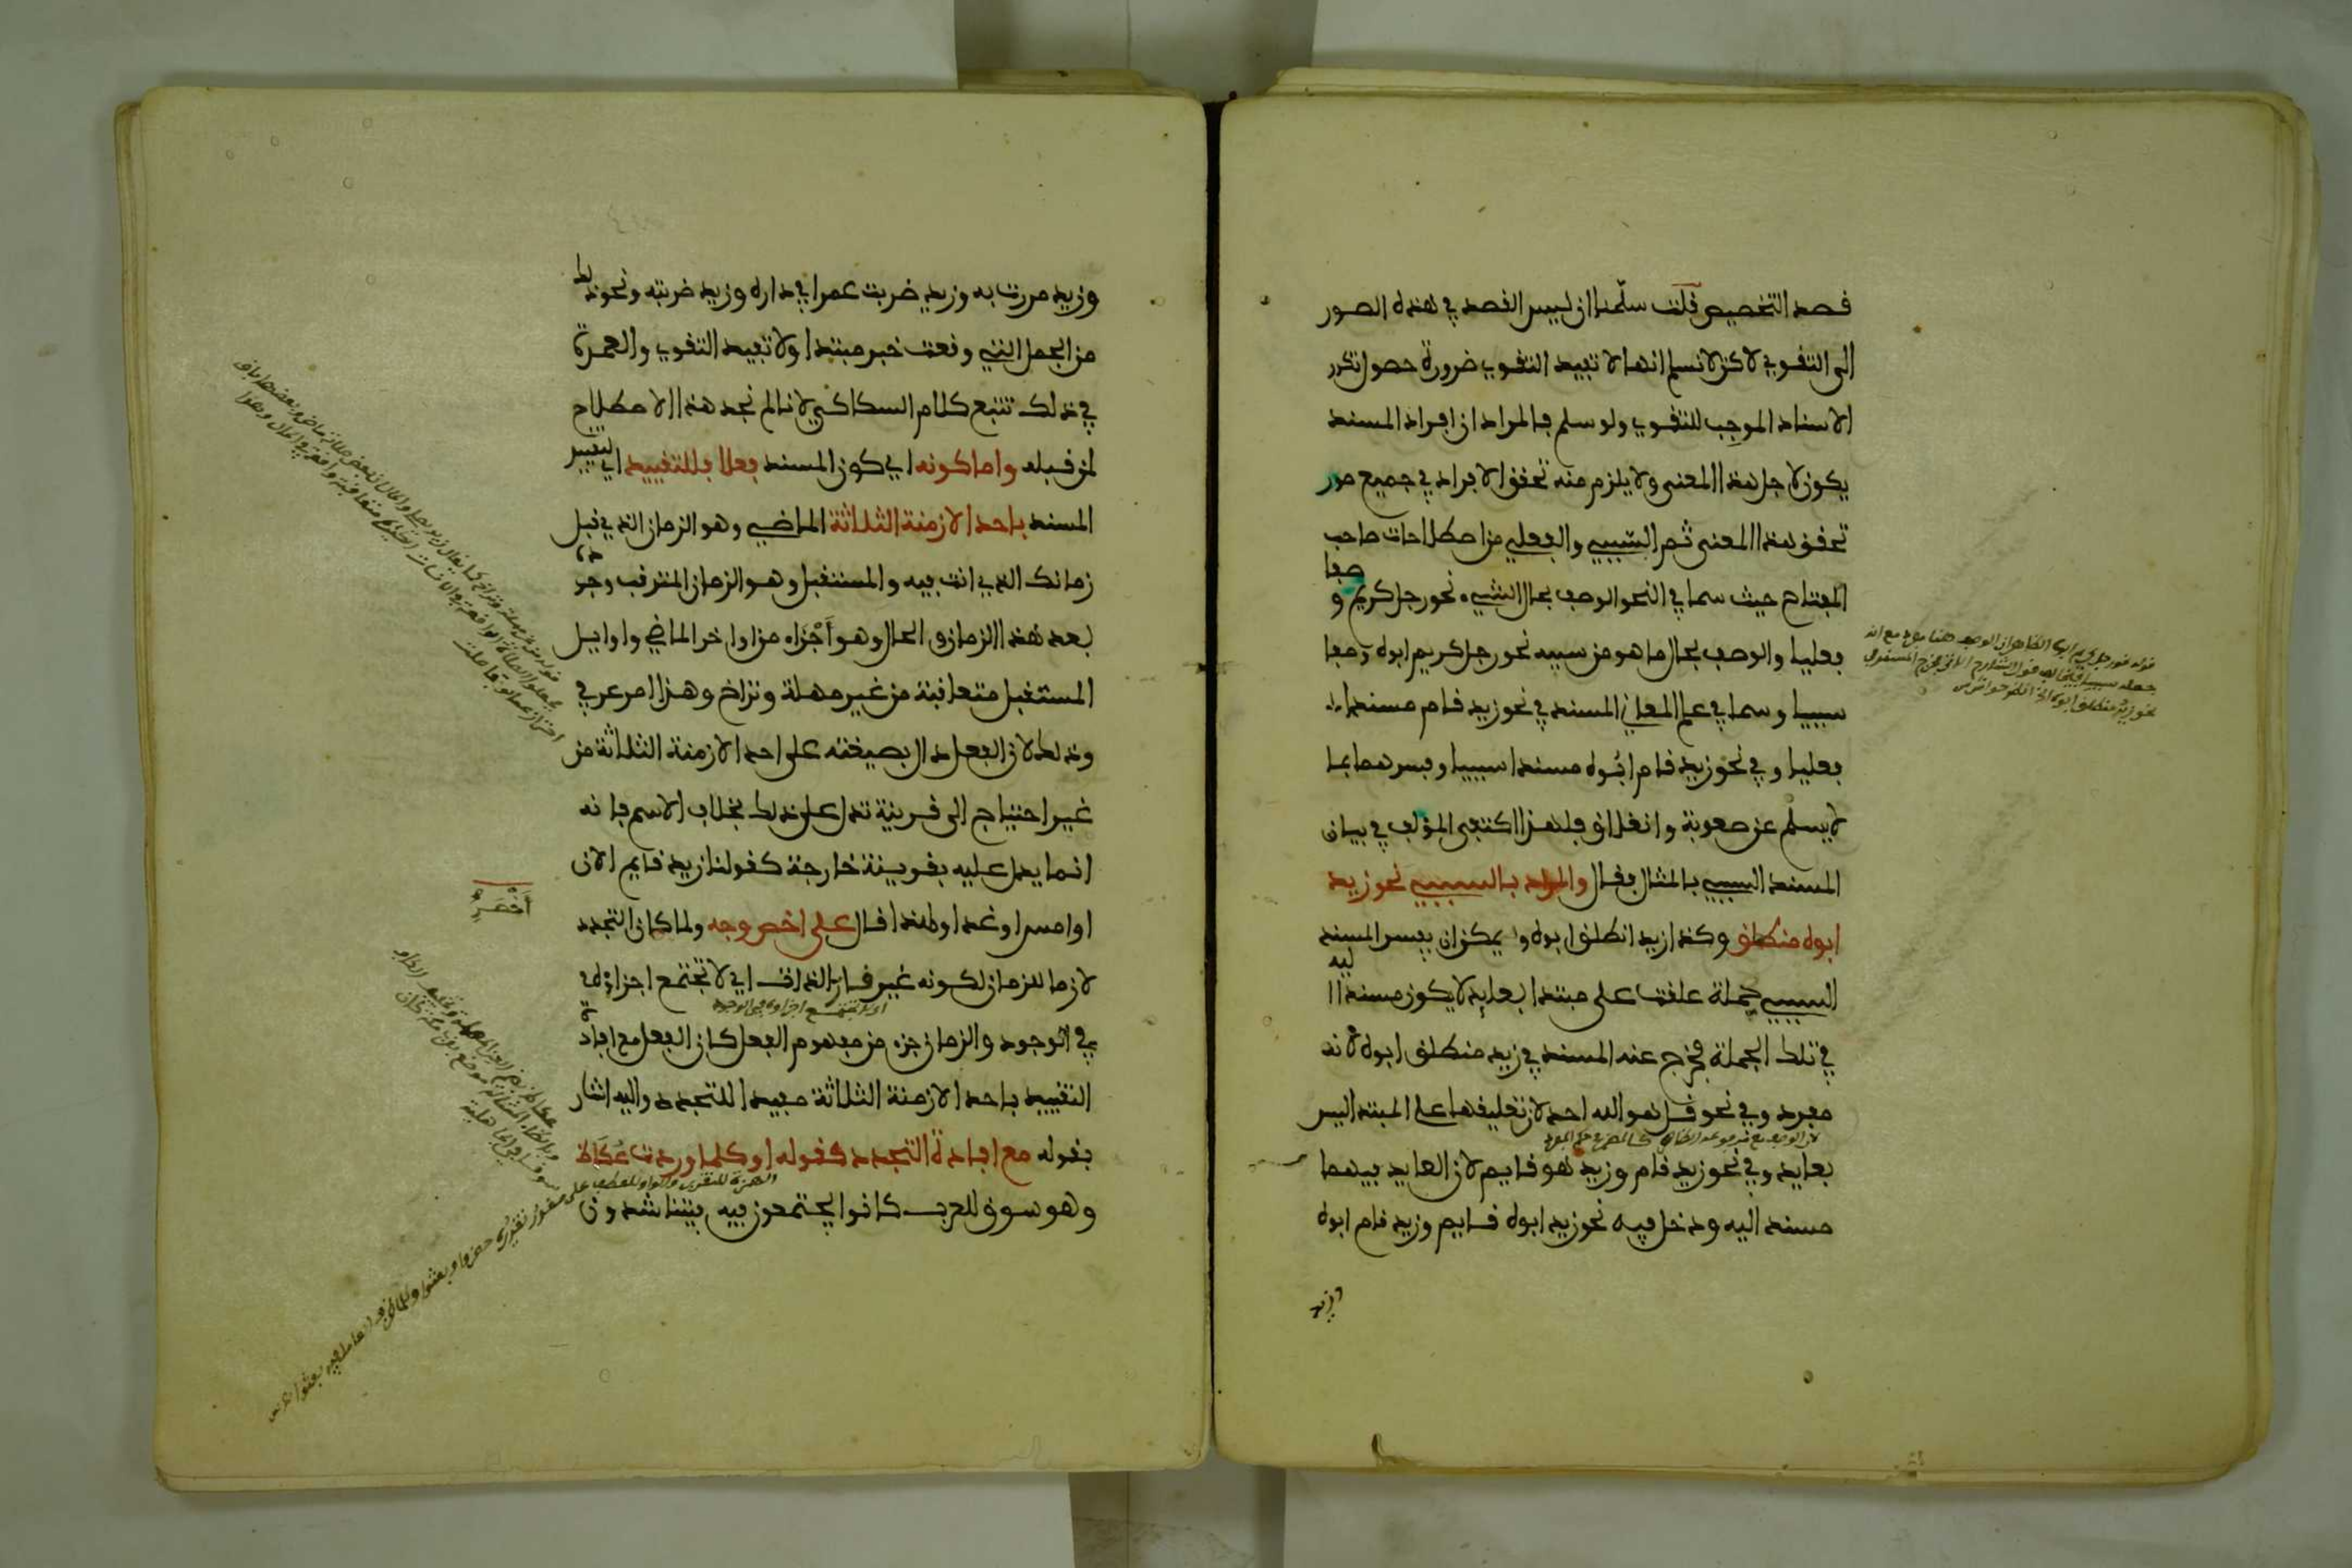 قصد التخصيص قلت سلمنا ان ليس القصد في هذه الصور
الى التقوي لاكن لا نسلم انها لا تفيد التقوي ضرورة حصول تكرر
الاسناد الموجب للتقوي ولو سلم فالمراد ان افراد المسند
يكون لاجل هذا المعنى ولا يلزم منه تحقق الافراد في جميع صور
تحقق هذا المعنى ثم السببي والفعلي من اصطلاحات صاحب
المفتاح حيث سما في النحو الوصف بحال الشيء نحو رجل كريم وصفا
فعليا والوصف بحال ما هو من سببه نحو رجل كريم ابوه وصفا
سببيا وسما في علم المعاني المسند في نحو زيد قام مسندا
فعليا وفي نحو زيد قام ابوه مسندا سببيا وفسرهما بما
لا يسلم عن صعوبة وانغلاق فلهذا اكتفى المؤلف في بيان
المسند السببي بالمثال فقال والمراد بالسببي نحو زيد
ابوه منطلق وكذا زيد انطلق ابوه ويمكن ان يفسر المسند
السببي بجملة علقت على مبتدا بعايد لا يكون مسندا اليه
في تلك الجملة فخرج عنه المسند في زيد منطلق ابوه لانه
مفرد وفي نحو قل هو الله احد لان تعليقها على المبتدا ليس
بعايد وفي نحو زيد قام وزيد هو قايم لان العايد فيهما
مسند اليه ودخل فيه نحو زيد ابوه قايم وزيد قام ابوه
وزيد
وزيد مررت به وزيد ضربت عمرا في داره وزيد ضربته ونحو ذلك
من الجمل التي وقعت خبر مبتدا ولا تفيد التقوي والعمدة
في ذلك تتبع كلام السكاكي لانا لم نجد هذا الاصطلاح
لمن قبله واما كونه اي كون المسند فعلا فللتقييد اي لتقييد
المسند باحد الازمنة الثلاثة الماضي وهو الزمان الذي قبل
زمانك الذي انت فيه والمستقبل وهو الزمان المترقب وجوده
بعد هذا الزمان والحال وهو أجزاء من اواخر الماضي واوايل
المستقبل متعاقبة من غير مهلة وتراخ وهذا امر عرفي
وذلك لان الفعل دال بصيغته على احد الازمنة الثلاثة من
غير احتياج الى قرينة تدل على ذلك بخلاف الاسم فانه
انما يدل عليه بقرينة خارجة كقولنا زيد قايم الان
او امس او غدا ولهذا قال على اخصر وجه ولما كان التجدد
أخصر
لازما للزمان لكونه غير قار الذات اي لا تجتمع اجزاؤه
في الوجود والزمان جزء من مفهوم الفعل كان الفعل مع افادة
التقييد باحد الازمنة الثلاثة مفيدا للتجدد واليه اشار
بقوله مع افادة التجدد كقوله اوكلما وردت عكاظ
وهو سوق للعرب كانوا يجتمعون فيه فيتناشدون